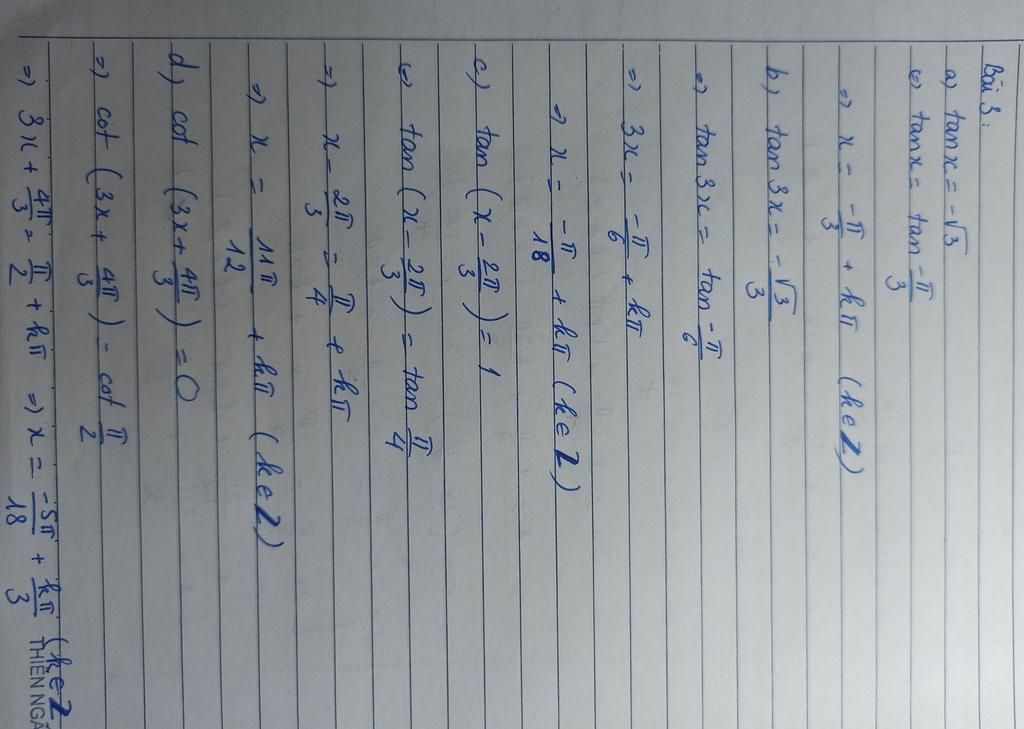 Bài 3:
a) tan x = -√3
⇔ tan x = tan -π/3
=> x = -π/3 + kπ (k∈Z)
b) tan 3x = -√3/3
=> tan 3x = tan -π/6
=> 3x = -π/6 + kπ
=> x = -π/18 + kπ (k∈Z)
c) tan (x - 2π/3) = 1
⇔ tan (x - 2π/3) = tan π/4
=> x = 2π/3 = π/4 + kπ
=> x = 11π/12 + kπ (k∈Z)
d) cot (3x + 4π/3) = 0
=> cot (3x + 4π/3) - cot π/2
=> 3x + 4π/3 = π/2 + kπ => x = -5π/18 + kπ/3 (k∈Z
THIÊN NGÂ